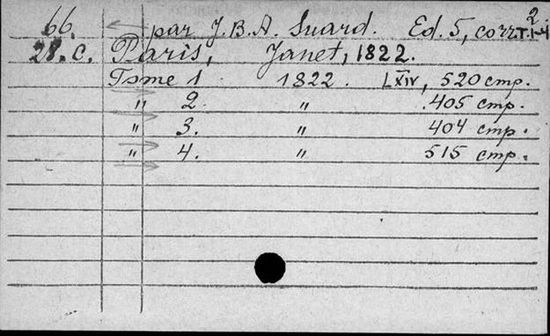 2.
66. par J. B. A. Suard. Ed. 5, corr. T. 1-4
28. c. Paris, Janet, 1822.
Tome 1. 1822. LXIV, 520 стр.
" 2. " 405 стр.
" 3. " 404 стр.
" 4. " 515 стр.